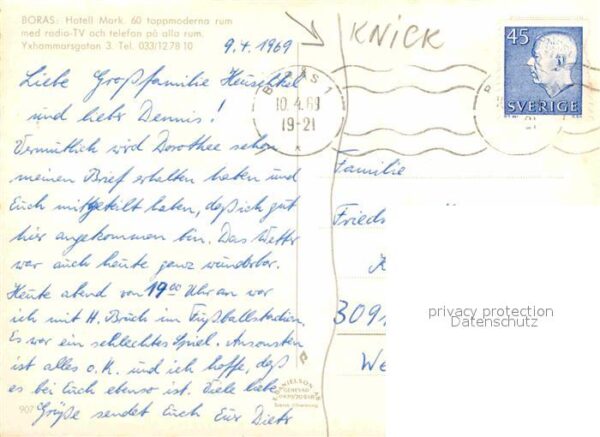 BORÅS: Hotell Mark. 60 toppmoderna rum
med radio-TV och telefon på alla rum.
Yxhammarsgatan 3. Tel. 033/12 78 10
9.4.1969
KNICK
45
SVERIGE
BORÅS 1
10.4.69
19-21
Liebe Großfamilie Heuschkel
und lieber Dennis!
Vermutlich wird Dorothee schon
meinen Brief erhalten haben und
Euch mitgeteilt haben, daß ich gut
hier angekommen bin. Das Wetter
war auch heute ganz wunderbar.
Heute abend von 19⁰⁰ Uhr an war
ich mit H. Buch im Fußballstadion.
Es war ein schlechtes Spiel. Ansonsten
ist alles o.K. und ich hoffe, daß
es bei Euch ebenso ist. Viele liebe
Grüße sendet Euch Euer Dieter
Familie
Frieds
309
We
privacy protection
Datenschutz
907